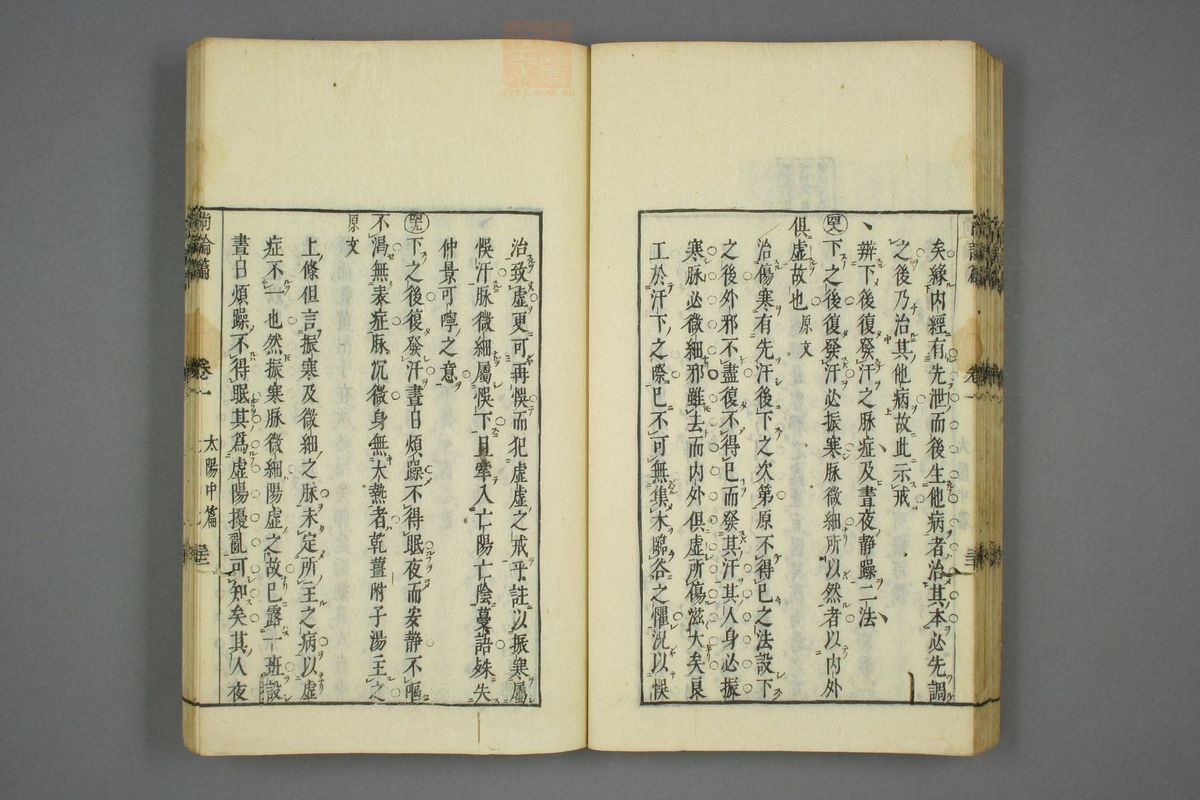 矣緣內經有先泄而後生他病者治其本必先調
之後乃治其他病故此示戒
辨下後復發汗之脉症及晝夜静躁二法
下之後復發汗必振寒脉微細所以然者以内外
俱虛故也 原文
治傷寒有先汗後下之次第原不得已之法設下
之後外邪不盡復不得已而發其汗其人身必振
寒脉必微細邪雖去而内外俱虛所傷滋大矣良
工於汗下之際已不可無集木臨谷之懼況以悞
治致虛更可再悞而犯虛虛之戒乎註以振寒屬
悞汗脉微細屬悞下且牽入亡陽亡陰蔓語殊失
仲景可嚀之意
下之後復發汗晝日煩躁不得眠夜而安静不嘔
不渴無表症脉沉微身無大熱者乾薑附子湯主之
原文
上條但言振寒及微細之脉未定所主之病以虛
症不一也然振寒脉微細陽虛之故已露一班設
晝日煩躁不得眠其爲虛陽擾亂可知矣其人夜
尚論篇 卷一 太陽中篇